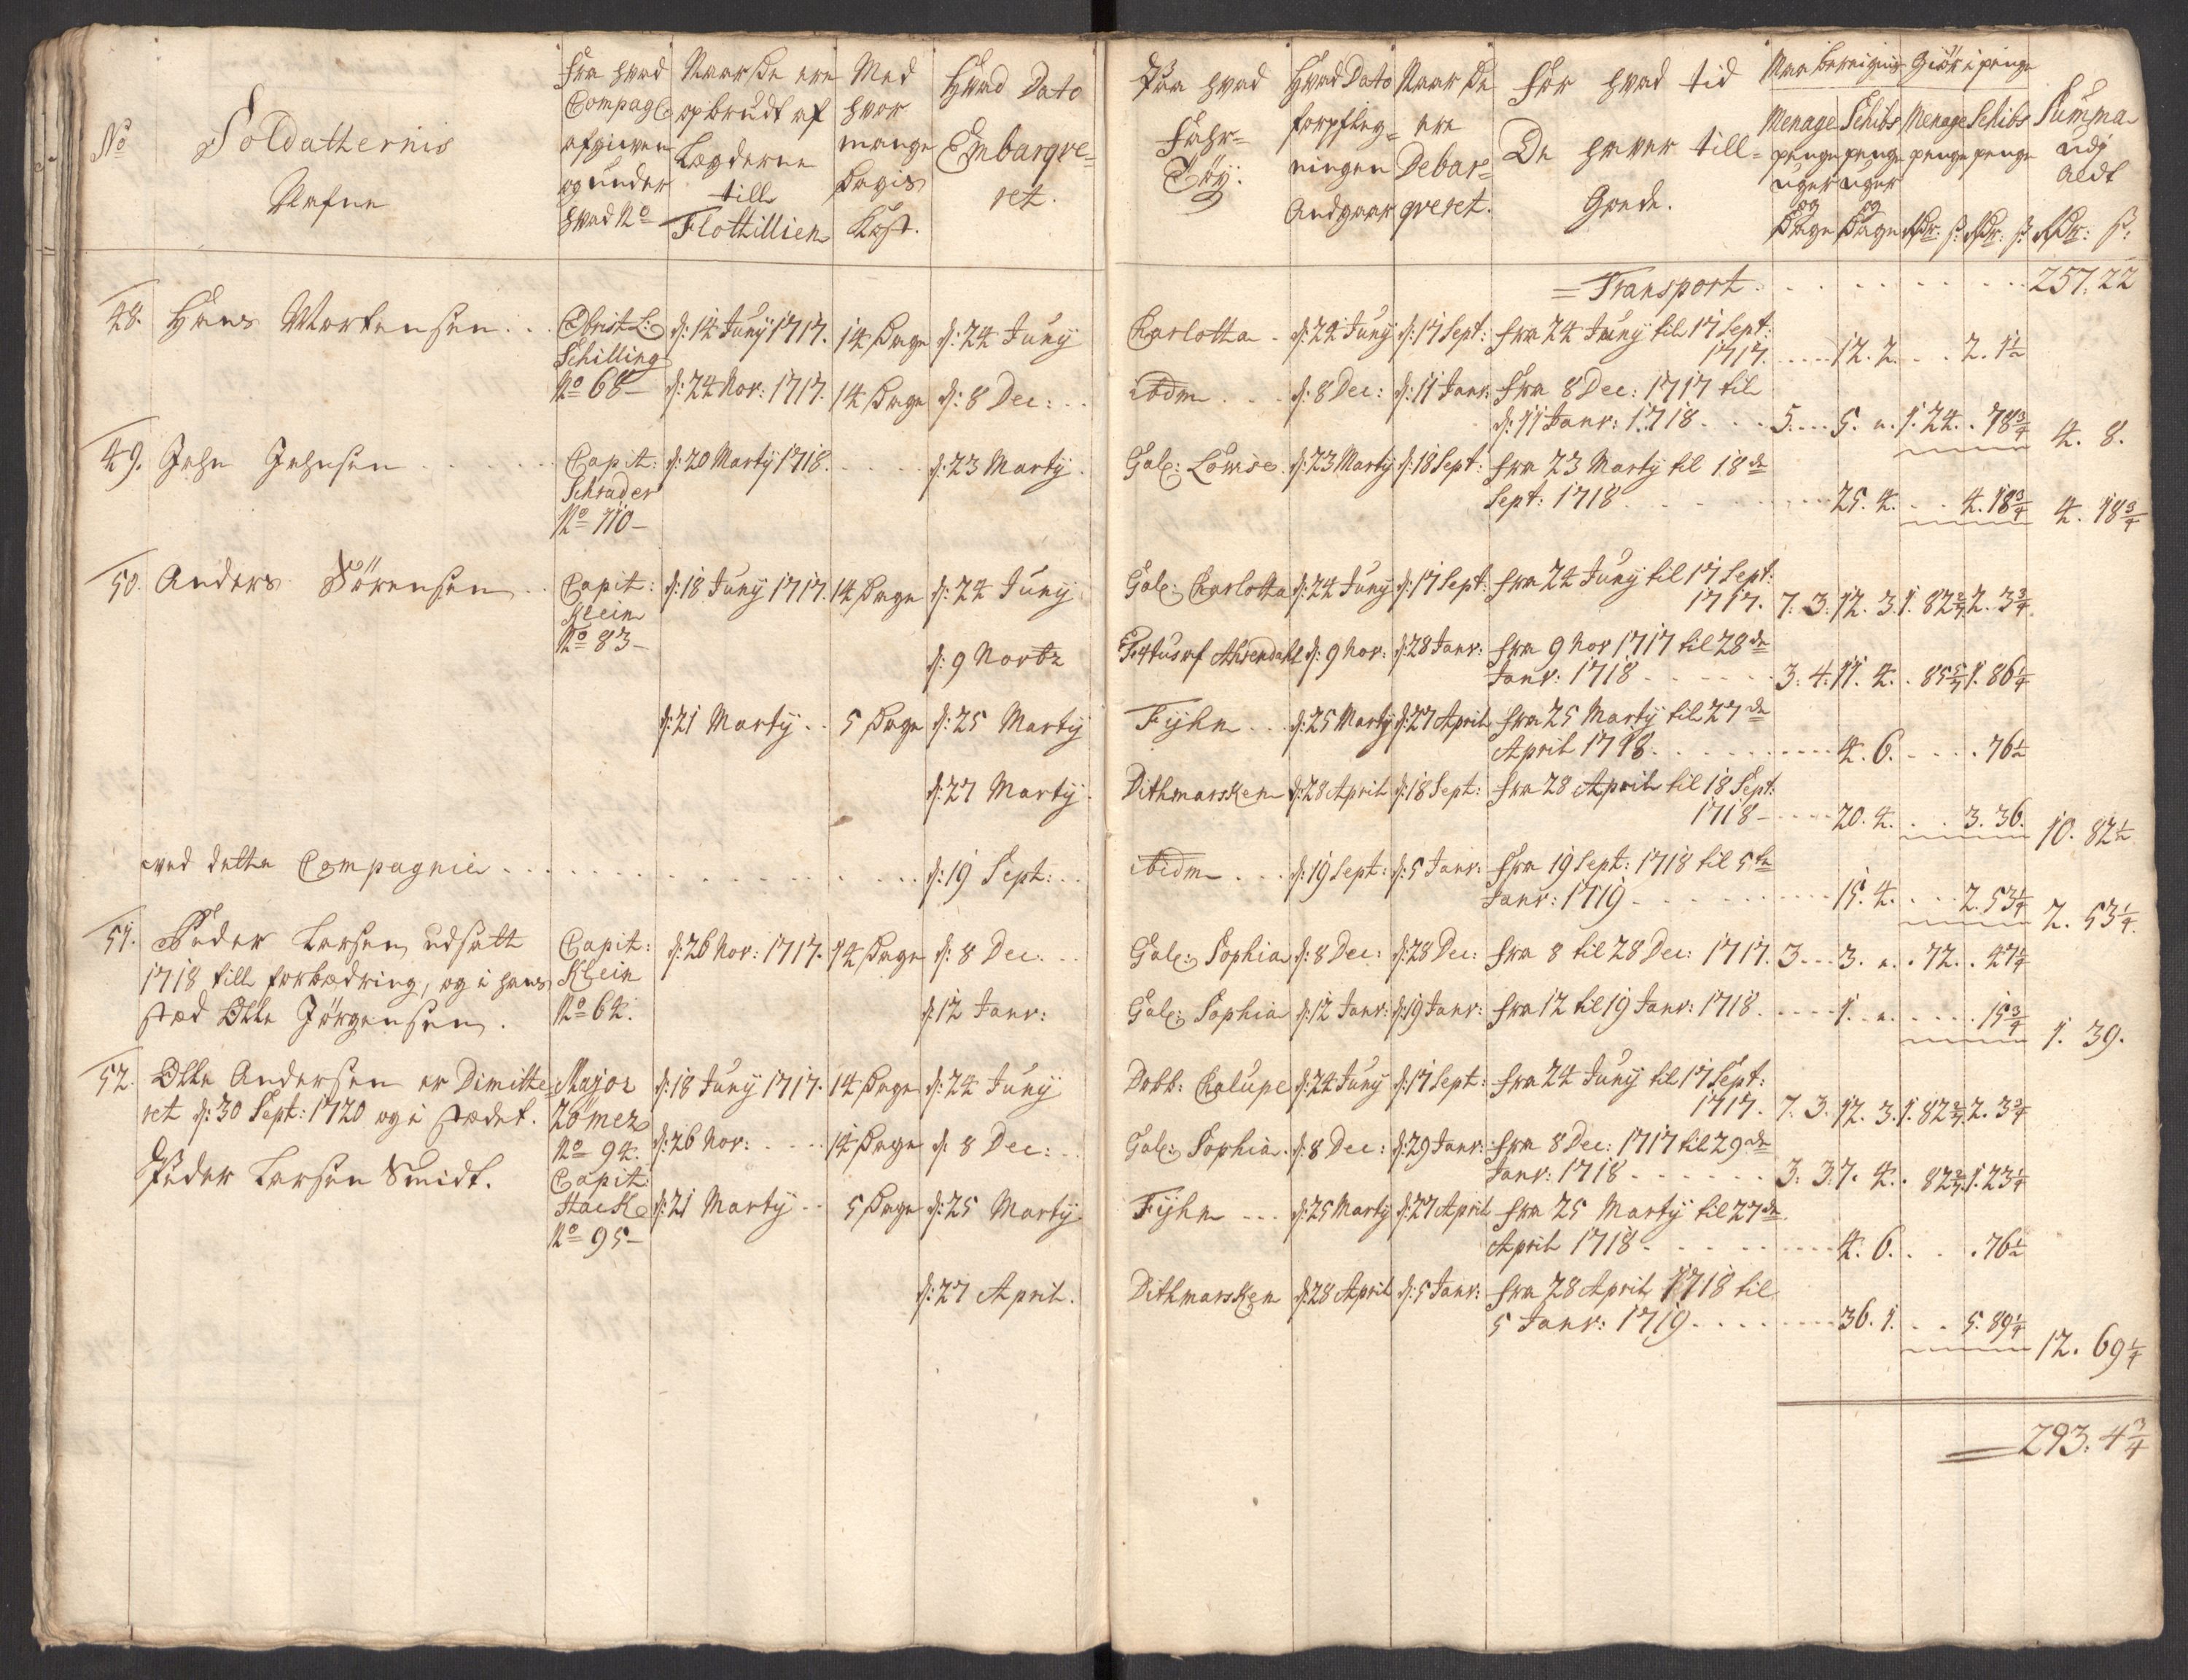 No
Soldatternis
Nafne
Fra hvad
Compag:
afgiwen
og under
hvad No
Naar De ere
opbrudt af
Lægderne
till
Flottillien
Med
hvor
mange
Dagis
Kost.
Hvad Dato
Embarqve=
ret.
Paa hvad
Fahr=
Töy.
Hvad Dato
forpfleg=
ningen
Andgaar
Naar De
ere
Debar=
qveret.
For hvad tid
De haver till=
Gode.
Giör i penge
Menage
penge
uger
og
Dage
Schibs
penge
uger
og
Dage
Menage
penge
Rdr: ß:
Schibs
penge
Rdr: ß:
Summa
udj
aldt
Rdr: ß:
= Transport . . . . . . . . 257. 22
48. Hans Mortensen . . Obrist L: d: 14 Juny 1717. 14 Dage d: 24 Juny Carlotta . d: 24 Juny d: 17 Sept: fra 24 Juny til 17 Sept:
Schilling 1717. . . . . 12. 2. . . 2. 1½
No 68 – d: 24 Nov: 1717. 14 Dage d: 8 Dec: . . ibidm . . . d: 8 Dec: d: 11 Janr: fra 8 Dec: 1717 til
d: 11 Janr: 1718 . . . 5. . . 5. ". 1. 24. . 78¾ 4. 8.
49. Jehn Jehnsen . . . . . . Capit: d: 20 Marty 1718. . . . . d: 23 Marty . Gal: Lowise. d: 23 Marty d: 18 Sept: fra 23 Marty til 18de
Schrader Sept: 1718 . . . . . . . 25. 4. . . 4. 18¾ 4. 18¾
No 110 –
50. Anders Sörensen . . Capit: d: 18 Juny 1717. 14 Dage d: 24 Juny Gal: Carlotta d: 24 Juny d: 17 Sept: fra 24 Juny til 17 Sept:
Klein 1717. 7. 3. 12. 3. 1. 82 2/7 2. 3¾
No 83 – d: 9 Novbr d: 9 Nov: d: 28 Janr: fra 9 Nov 1717 til 28de
Janr: 1718 . . . . . . 3. 4. 11. 4. . 85 5/7 1. 86¼
d: 21 Marty . . 5 Dage d: 25 Marty Fyhn . . . d: 25 Marty d: 27 April fra 25 Marty til 27de
April 1718 . . . . . . . . 4. 6. . . . . 76½
d: 27 Marty. Dithmarsken d: 28 April d: 18 Sept: fra 28 April til 18 Sept:
1718 – . . . . 20. 4. . . 3. 36. 10. 82½
ved dette Compagnie . . . . . . . . . . . . d: 19 Sept: . . ibidm . . . d: 19 Sept: d: 5 Janr: fra 19 Sept: 1718 til 5te
Janr: 1719 . . . . . . . . 15. 4. . . . 2. 53¼ 2. 53¼.
51. Peder Larsen udsatt Capit: d: 26 Nov: 1717. 14 Dage d: 8 Dec: . . Gal: Sophia d: 8 Dec: d: 28 Dec: fra 8 til 28 Dec: 1717. 3. . . 3. ". . 72. . 47¼
1718 till forbædring, og i hans Klein
sted Olle Jörgensen. No 64. d: 12 Janr: Gal: Sophia d: 12 Janr: d: 19 Janr: fra 12 til 19 Janr: 1718. . . . . 1. ". . . . . 15¾ 1. 39.
52. Olle Andersen er Dimitte= Major d: 18 Juny 1717. 14 Dage d: 24 Juny Dobb: Calupe d: 24 Juny d: 17 Sept: fra 24 Juny til 17 Sept:
ret d: 30 Sept: 1720 og i stædet. Römer 1717. 7. 3. 12. 3. 1. 82 2/7 2. 3¾
No 94. d: 26 Nov: . . . . 14 Dage d: 8 Dec: . . Gal: Sophia . d: 8 Dec: d: 29 Janr: fra 8 Dec: 1717 til 29de
Peder Larsen Smidt. Capit: Janr: 1718 . . . . . . 3. 3. 7. 4. . 82 2/7 1. 23¼
Hacke d: 21 Marty . . 5 Dage d: 25 Marty Fyhn . . . d: 25 Marty d: 27 April fra 25 Marty til 27de
No 95 – April 1718 . . . . . . . . 4. 6. . . . 76½
d: 27 April. Dithmarsken d: 28 April d: 5 Janr: fra 28 April 1718 til
5 Janr: 1719 . . . . . . . . 36. 1. . . 5. 89¼ 12. 69¼
293. 4¾